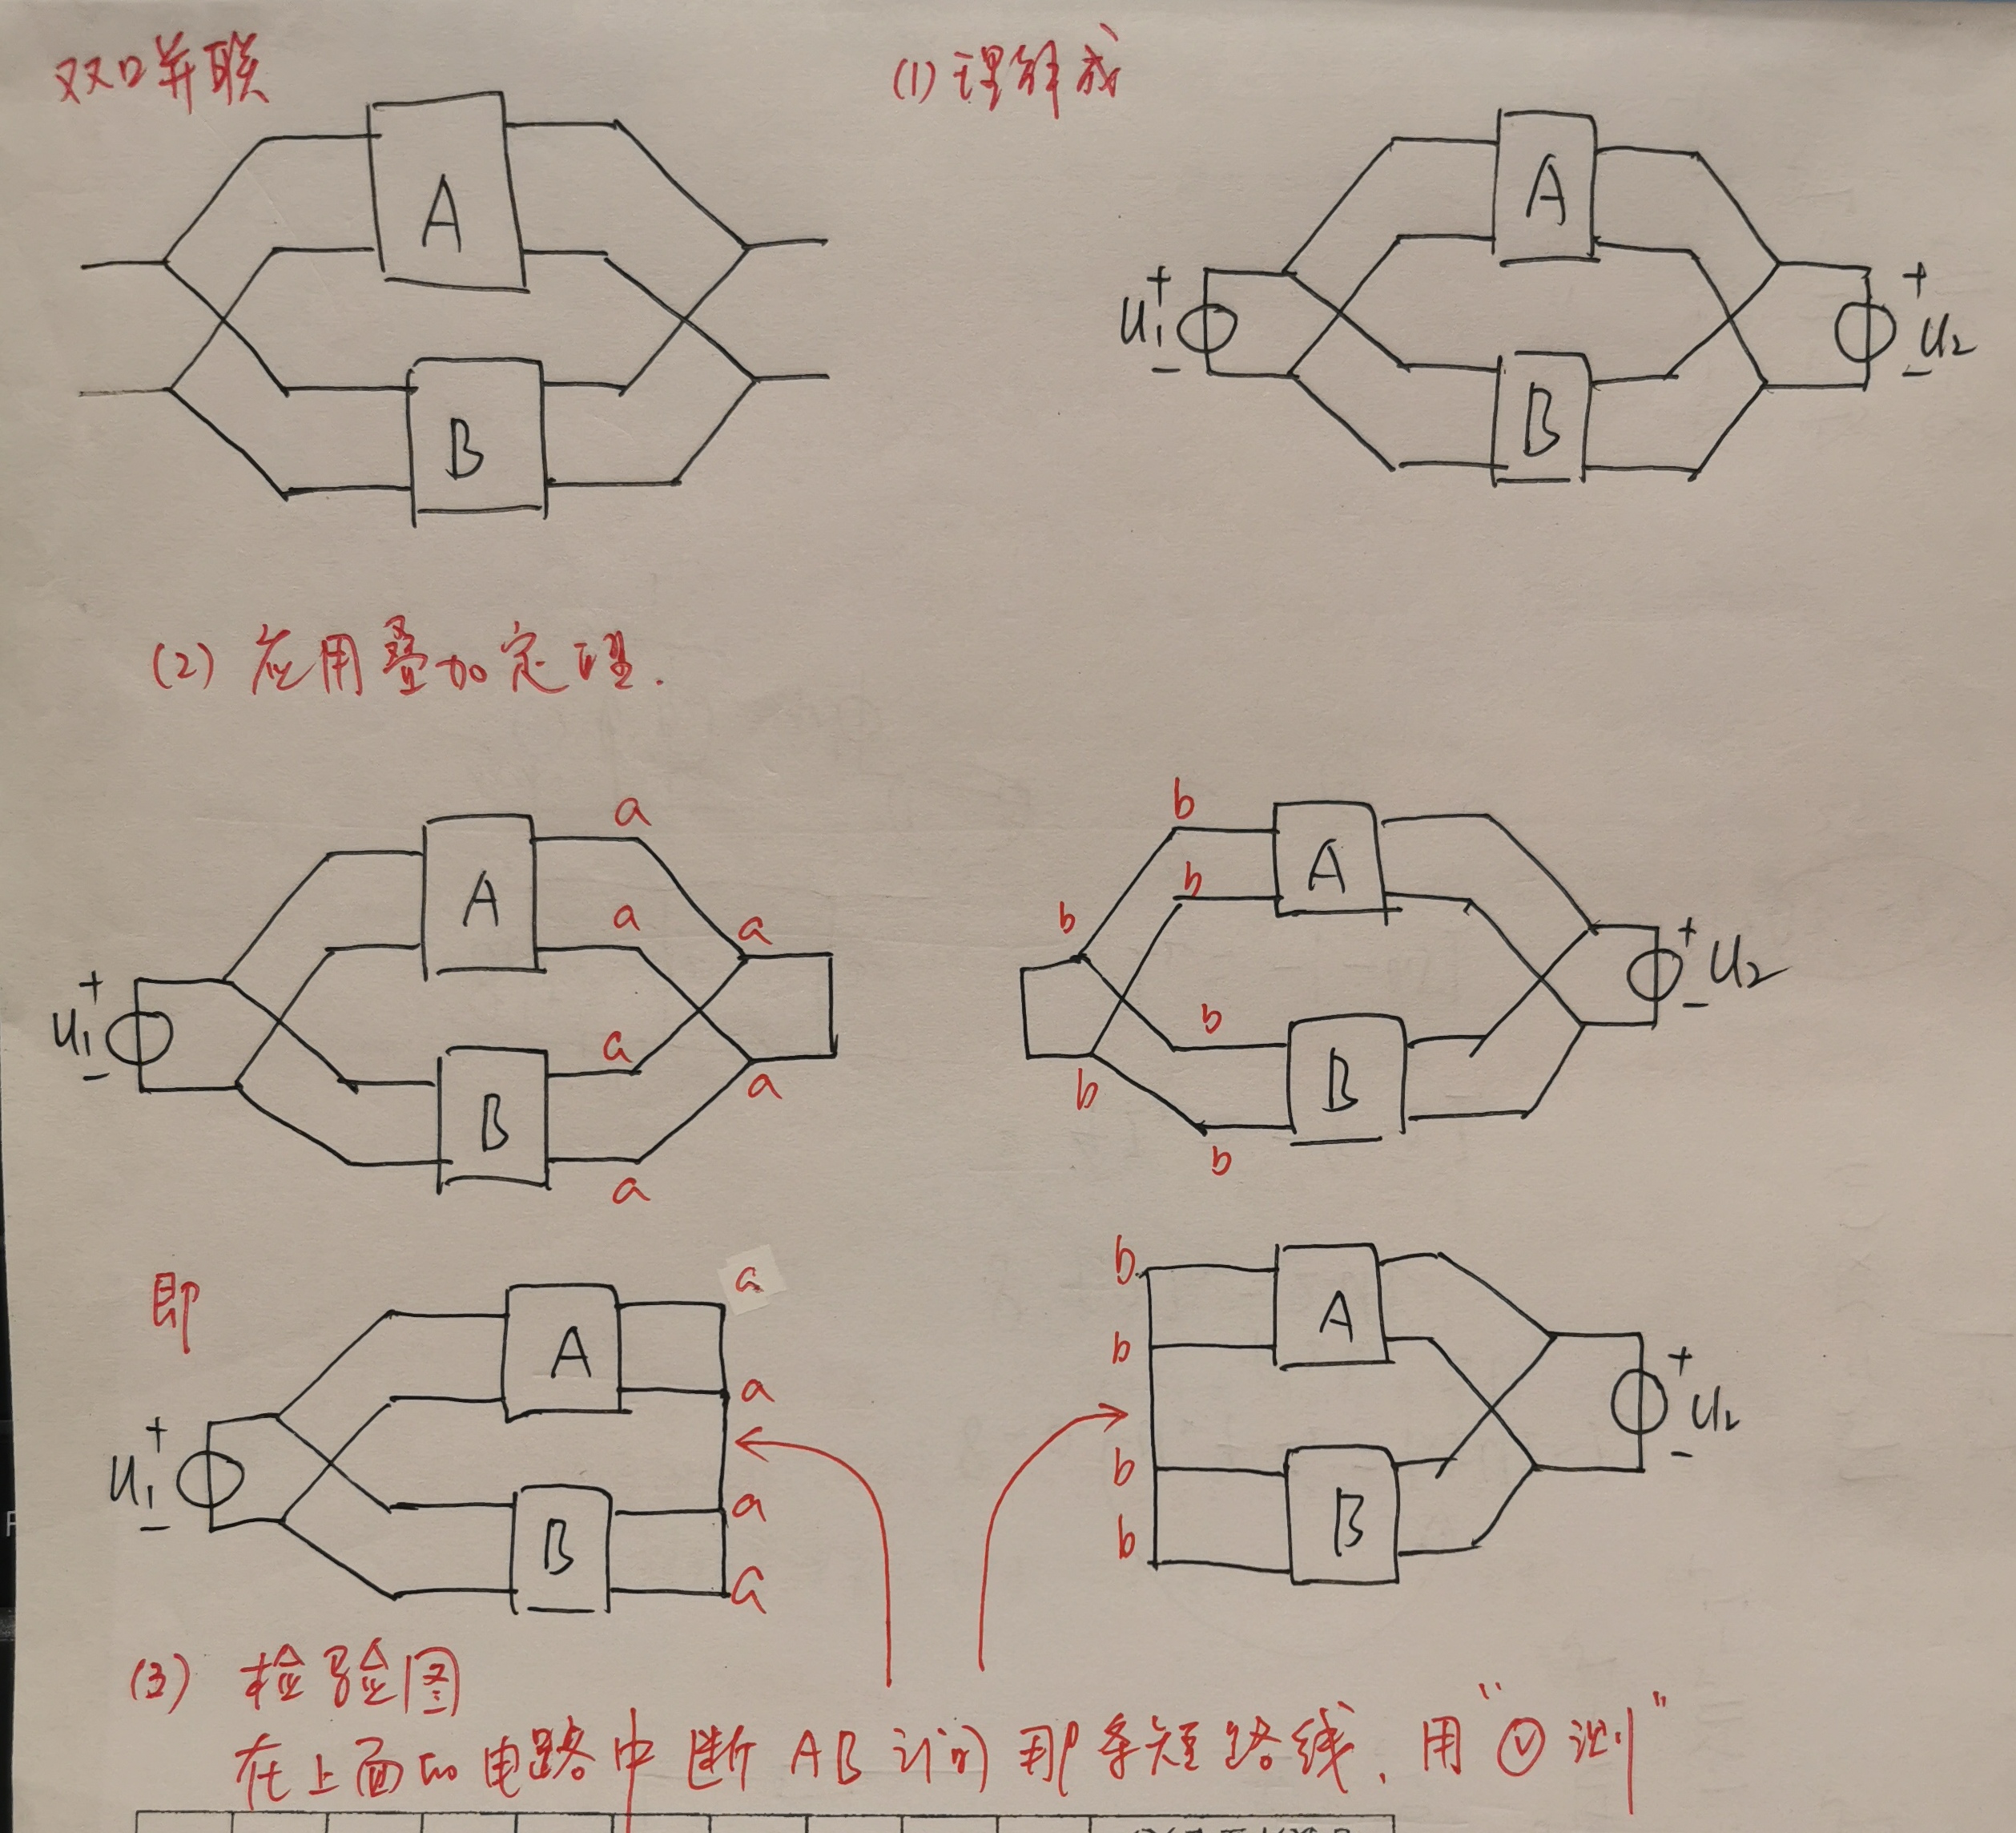 双口并联
(1) 理解成
A
B
A
B
+
U1
-
+
U2
-
(2) 应用叠加定理.
A
B
+
U1
-
a
a
a
a
a
a
b
b
b
b
b
b
A
B
+
U2
-
即
A
B
+
U1
-
a
a
a
a
b
b
b
b
A
B
+
U2
-
(3) 检验图
在上面的电路中断AB间那条短路线,用"Ⓥ测"